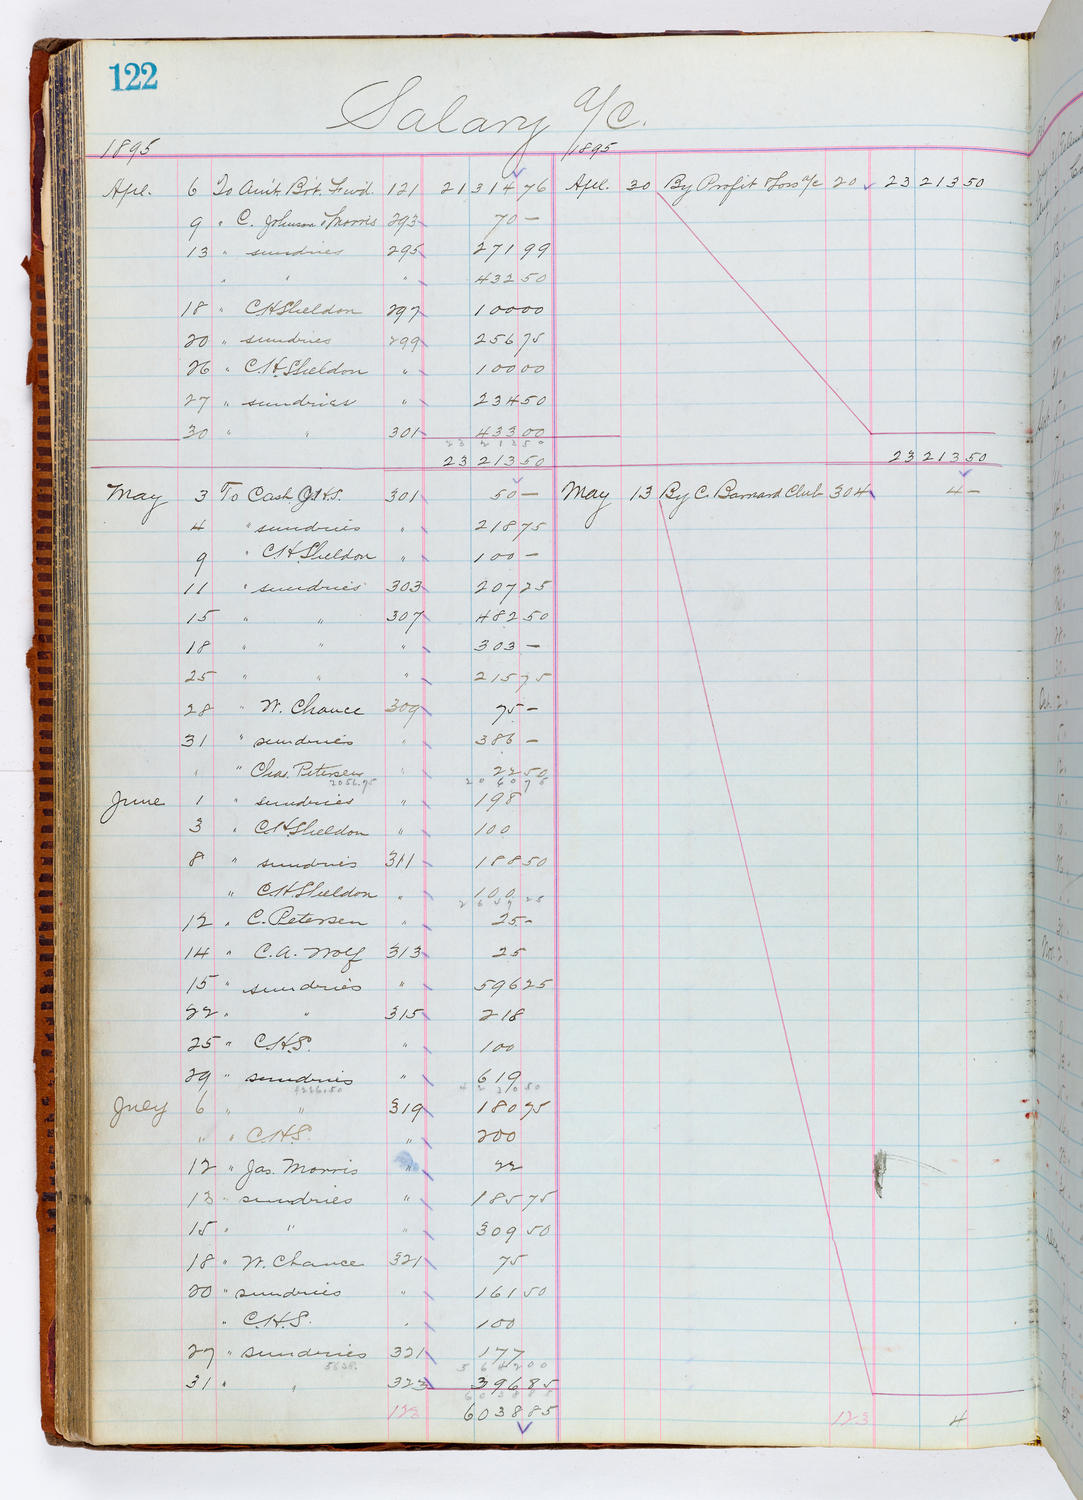 122
Salary a/c.
1895 1895
Apl. 6 To Am't Bo't Fw'd 121 21 314 76 Apl. 30 By Profit & Loss a/c 20 23 213 50
9 " C. Johnson & Morris 293 70 –
13 " sundries 295 271 99
" " " 432 50
18 " C H Sheldon 297 100 00
20 " sundries 299 256 75
26 " C. H. Sheldon " 100 00
27 " sundries " 234 50
30 " " 301 433 00
23 213 50
23 213 50 23 213 50
May 3 To Cash C.H.S. 301 50 – May 13 By C. Barnard Club 304 4 –
4 " sundries " 218 75
9 " C. H. Sheldon " 100 –
11 " sundries 303 207 25
15 " " 307 482 50
18 " " " 303 –
25 " " " 215 75
28 " W. Chance 309 75 –
31 " sundries " 386 –
" " Chas. Petersen " 22 50
2056.75 2060 75
June 1 " sundries " 198
3 " C. H. Sheldon " 100
8 " sundries 311 188 50
" C. H. Sheldon " 100
2647 25
12 " C. Petersen " 25 –
14 " C. A. Wolf 313 25
15 " sundries " 596 25
22 " " 315 218
25 " C. H. S. " 100
29 " sundries " 619
4226.50 4230 50
July 6 " " 319 180 75
" " C. H. S. " 200
12 " Jas. Morris " 22
13 " sundries " 185 75
15 " " " 309 50
18 " W. Chance 321 75
20 " sundries " 161 50
" C. H. S. " 100
27 " sundries 321 177
5638. 5642 00
31 " " 323 396 85
6038 85
123 6038 85 123 4